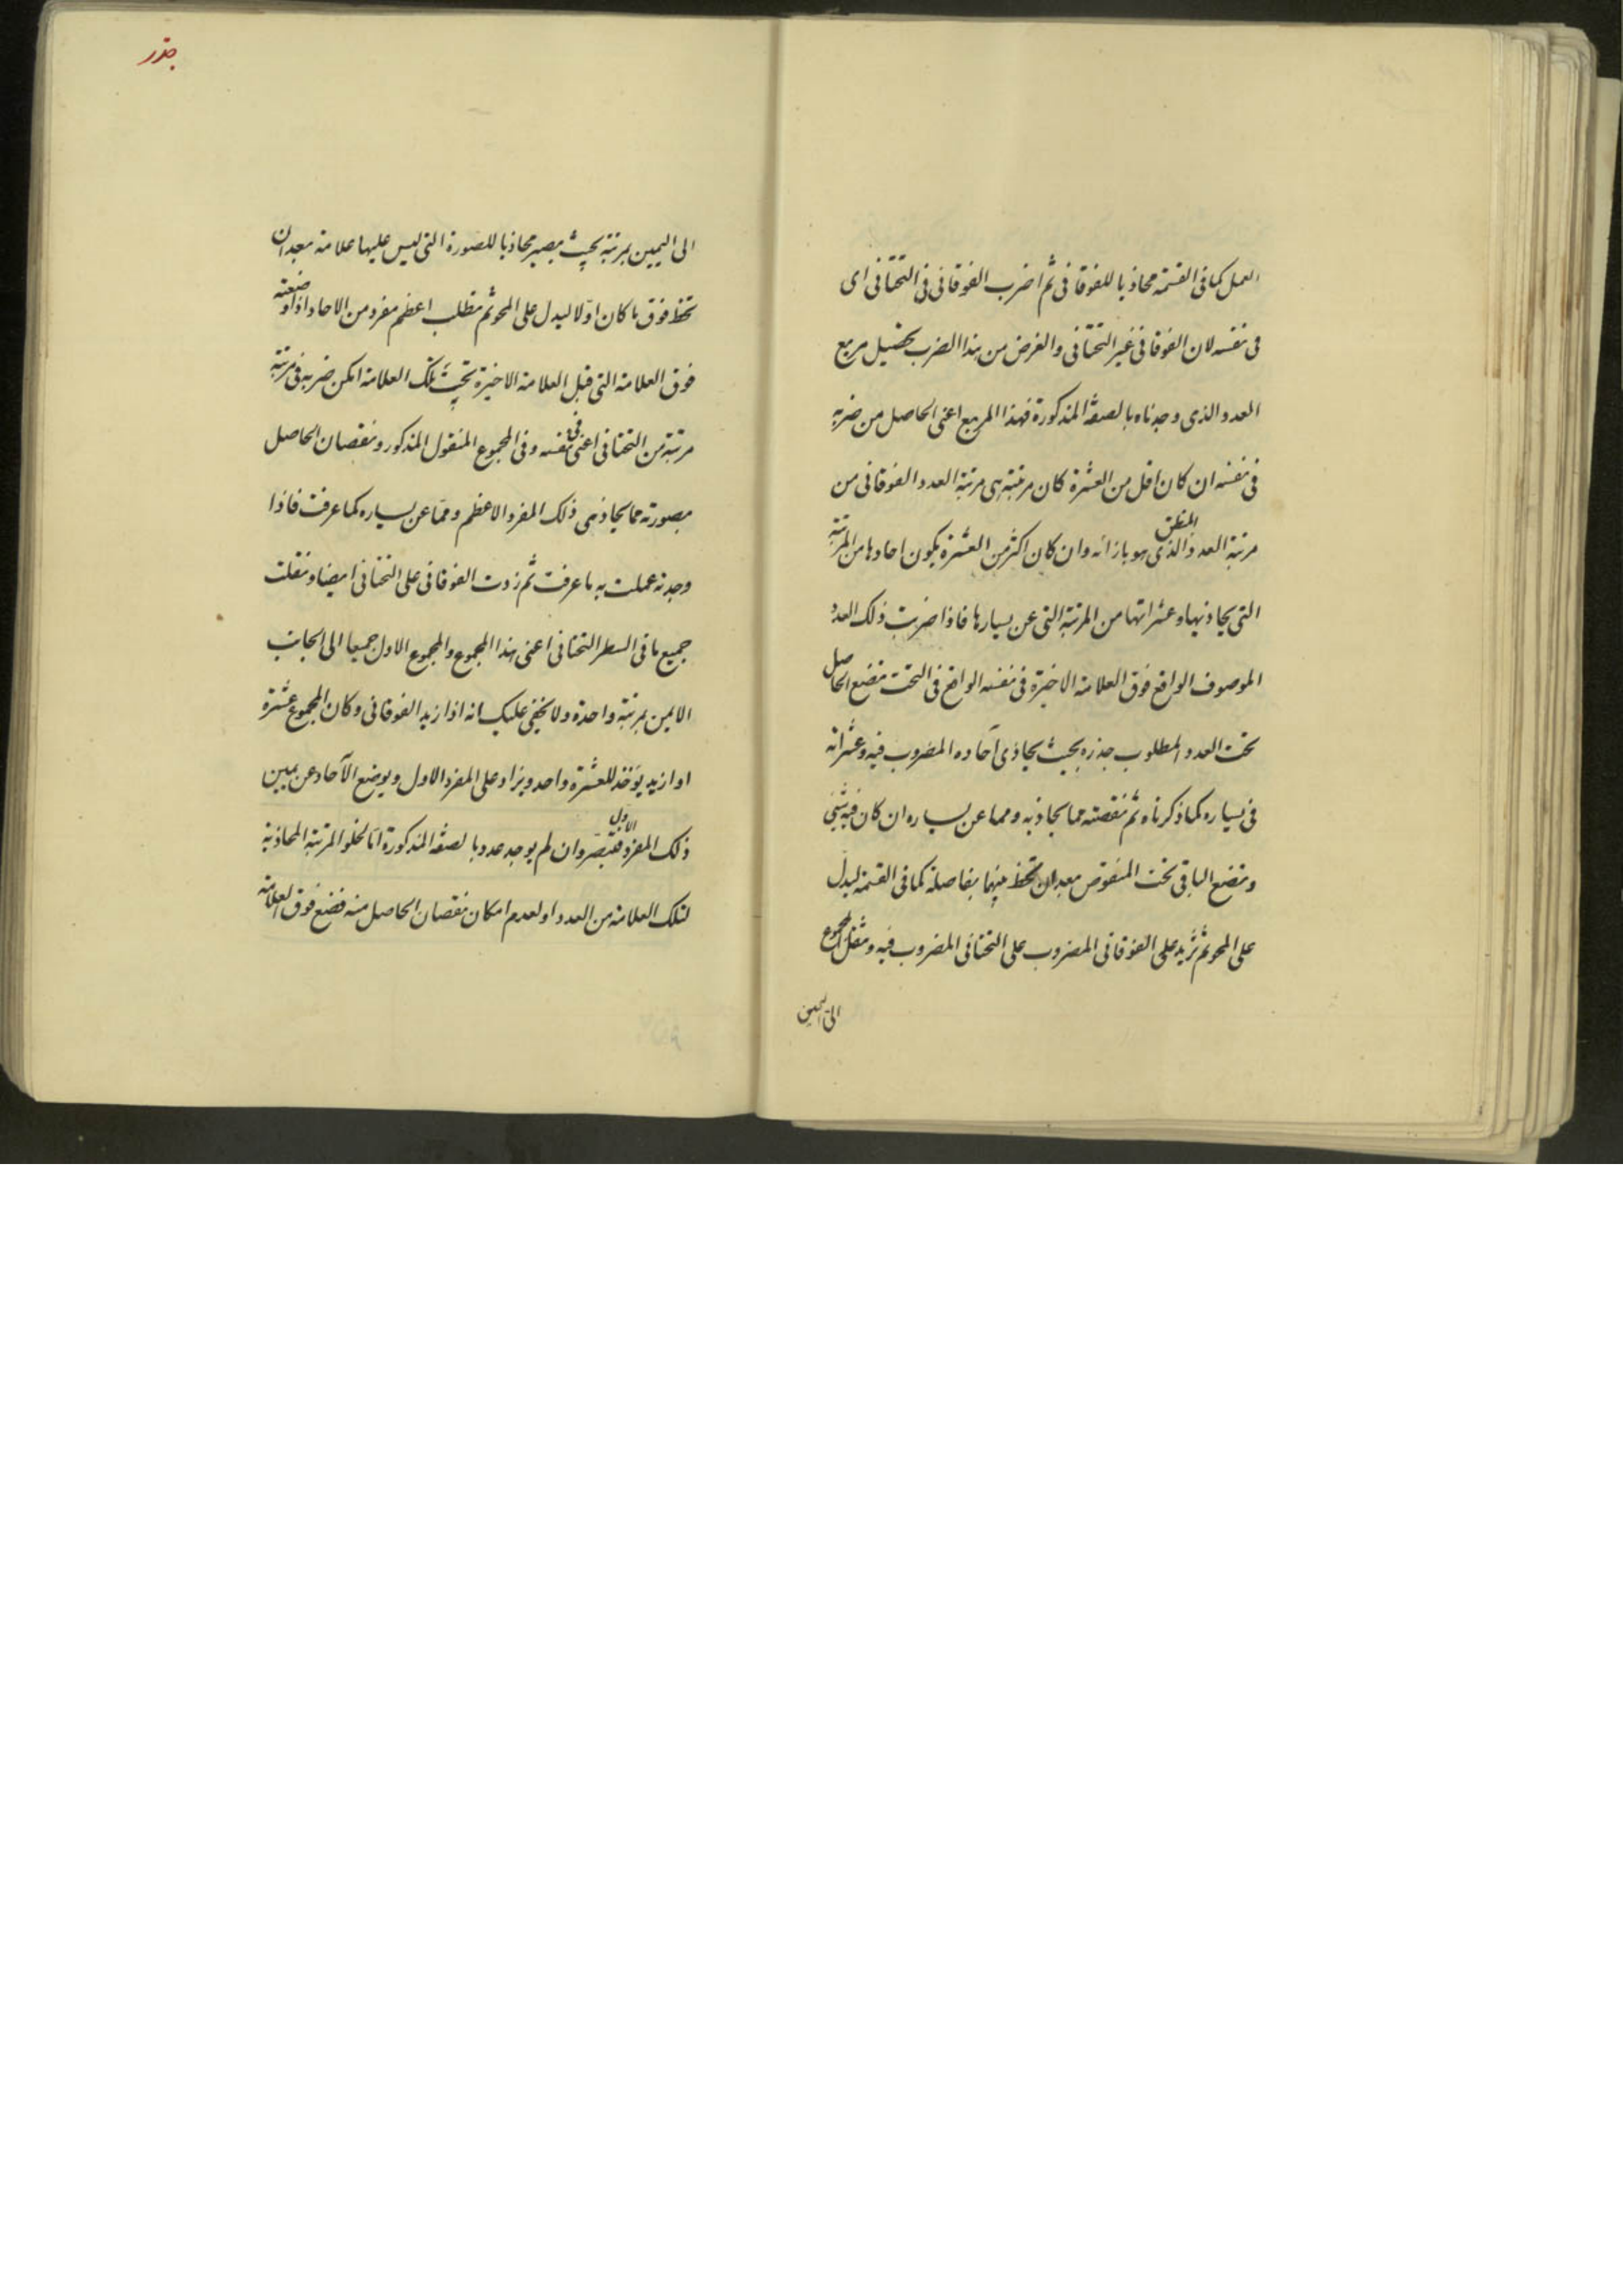 العمل كما فى القسمة محاذيا للفوقانى ثم اضرب الفوقانى فى التحتانى اى
فى نفسه لان الفوقانى غير التحتانى والغرض من هذا الضرب تحصيل مربع
العدد الذى وجدناه بالصفة المذكورة فهذا المربع اعنى الحاصل من ضربه
فى نفسه ان كان اقل من العشرة كان مرتبته هى مرتبة العدد الفوقانى من
المنطق
مرتبة العدد الذى هو بازائه وان كان اكثر من العشرة يكون احادها من المرتبة
التى يحاذيها وعشراتها من المرتبة التى عن يسارها فاذا ضربت ذلك العدد
الموصوف الواقع فوق العلامة الاخيرة فى نفسه الواقع فى التحت تضع الحاصل
تحت العدد المطلوب جذره بحيث يحاذى آحاده المضروب فيه وعشراته
فى يساره كما ذكرناه ثم نقصته مما يحاذيه ومما عن يساره ان كان فيه شئ
وتضع الباقى تحت المنقوص بعد ان تخط بينهما بفاصلة كما فى القسمة ليدل
على المحو ثم تزيد على الفوقانى المضروب على التحتانى المضروب فيه وتنقل المجموع
الى اليمين
جذر
الى اليمين بمرتبة بحيث يصير محاذيا للصورة التى ليس عليها علامة بعد ان
تخط فوق ما كان اوّلا ليدل على المحو ثم تطلب اعظم مفرد من الاحاد اذا وضعته
فوق العلامة التى قبل العلامة الاخيرة وتحت تلك العلامة امكن ضربه فى مرتبة
مرتبة من التحتانى اعنى فى نفسه وفى المجموع المنقول المذكور ونقصان الحاصل
بصورته مما يحاذى ذلك المفرد الاعظم وممّا عن يساره كما عرفت فاذا
وجدته عملت به ما عرفت ثم زدت الفوقانى على التحتانى ايضا ونقلت
جميع ما فى السطر التحتانى اعنى هذا المجموع والمجموع الاول جميعا الى الجانب
الايمن بمرتبة واحدة ولا يخفى عليك انه اذا زيد الفوقانى وكان المجموع عشرة
او ازيد يؤخذ للعشرة واحد ويزاد على المفرد الاول ويوضع الآحاد عن يمين
ذلك المفرد الاول فتبصّر وان لم يوجد عدد بالصفة المذكورة امّا لخلو المرتبة المحاذية
لتلك العلامة من العدد او لعدم امكان نقصان الحاصل منه فضع فوق العلامة